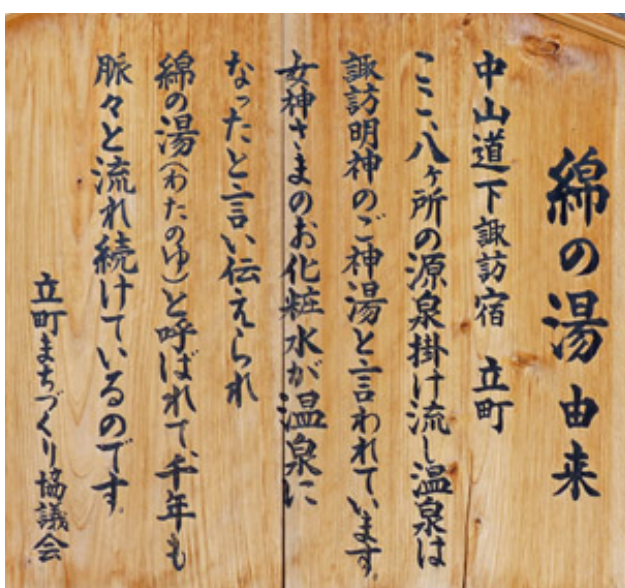 綿の湯 由来
中山道下諏訪宿 立町
ここ、八ヶ所の源泉掛け流し温泉は
諏訪明神のご神湯と言われています。
女神さまのお化粧水が温泉に
なったと言い伝えられ
綿の湯(わたのゆ)と呼ばれて、千年も
脈々と流れ続けているのです。
立町まちづくり協議会